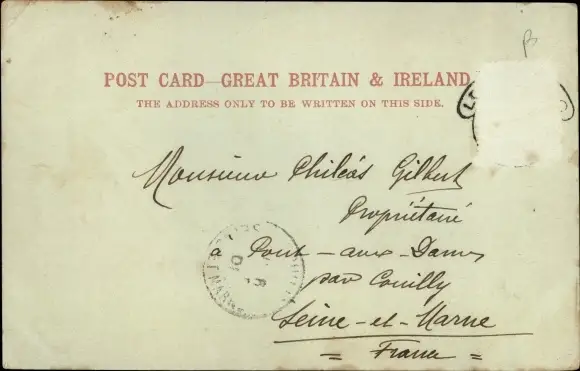 B
POST CARD—GREAT BRITAIN & IRELAND
THE ADDRESS ONLY TO BE WRITTEN ON THIS SIDE.
Monsieur Philéas Gilbert
Propriétaire
à Pont-aux-Dames
par Couilly
Seine-et-Marne
= France =